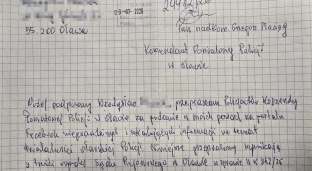 55-200 Oława
Pan nadkom. Grzegorz
Komendant Powiatowy Policji
w Oławie
Niżej podpisany Władysław przepraszam Policjantów Komendy
Powiatowej Policji w Oławie za podanie w moich postach na portalu
Facebook nieprawdziwych i informacji na temat
działalności oławskiej Policji. Niniejsze przeprosiny
z treści wyroku Sądu Rejonowego w Oławie w sprawie II K